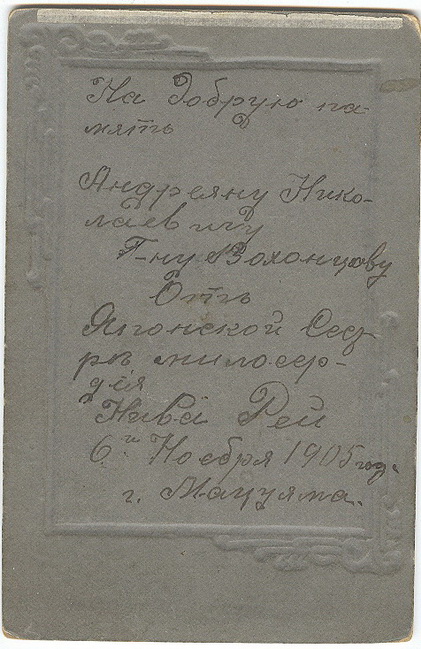 На добрую па-
мять
Андреяну Нико-
лаевичу
Г-ну Волонцову
Отъ
Японской Сест-
ръ милосер-
дія
Нива Реи
6й Ноебря 1905 год.
г. Мацуяма.